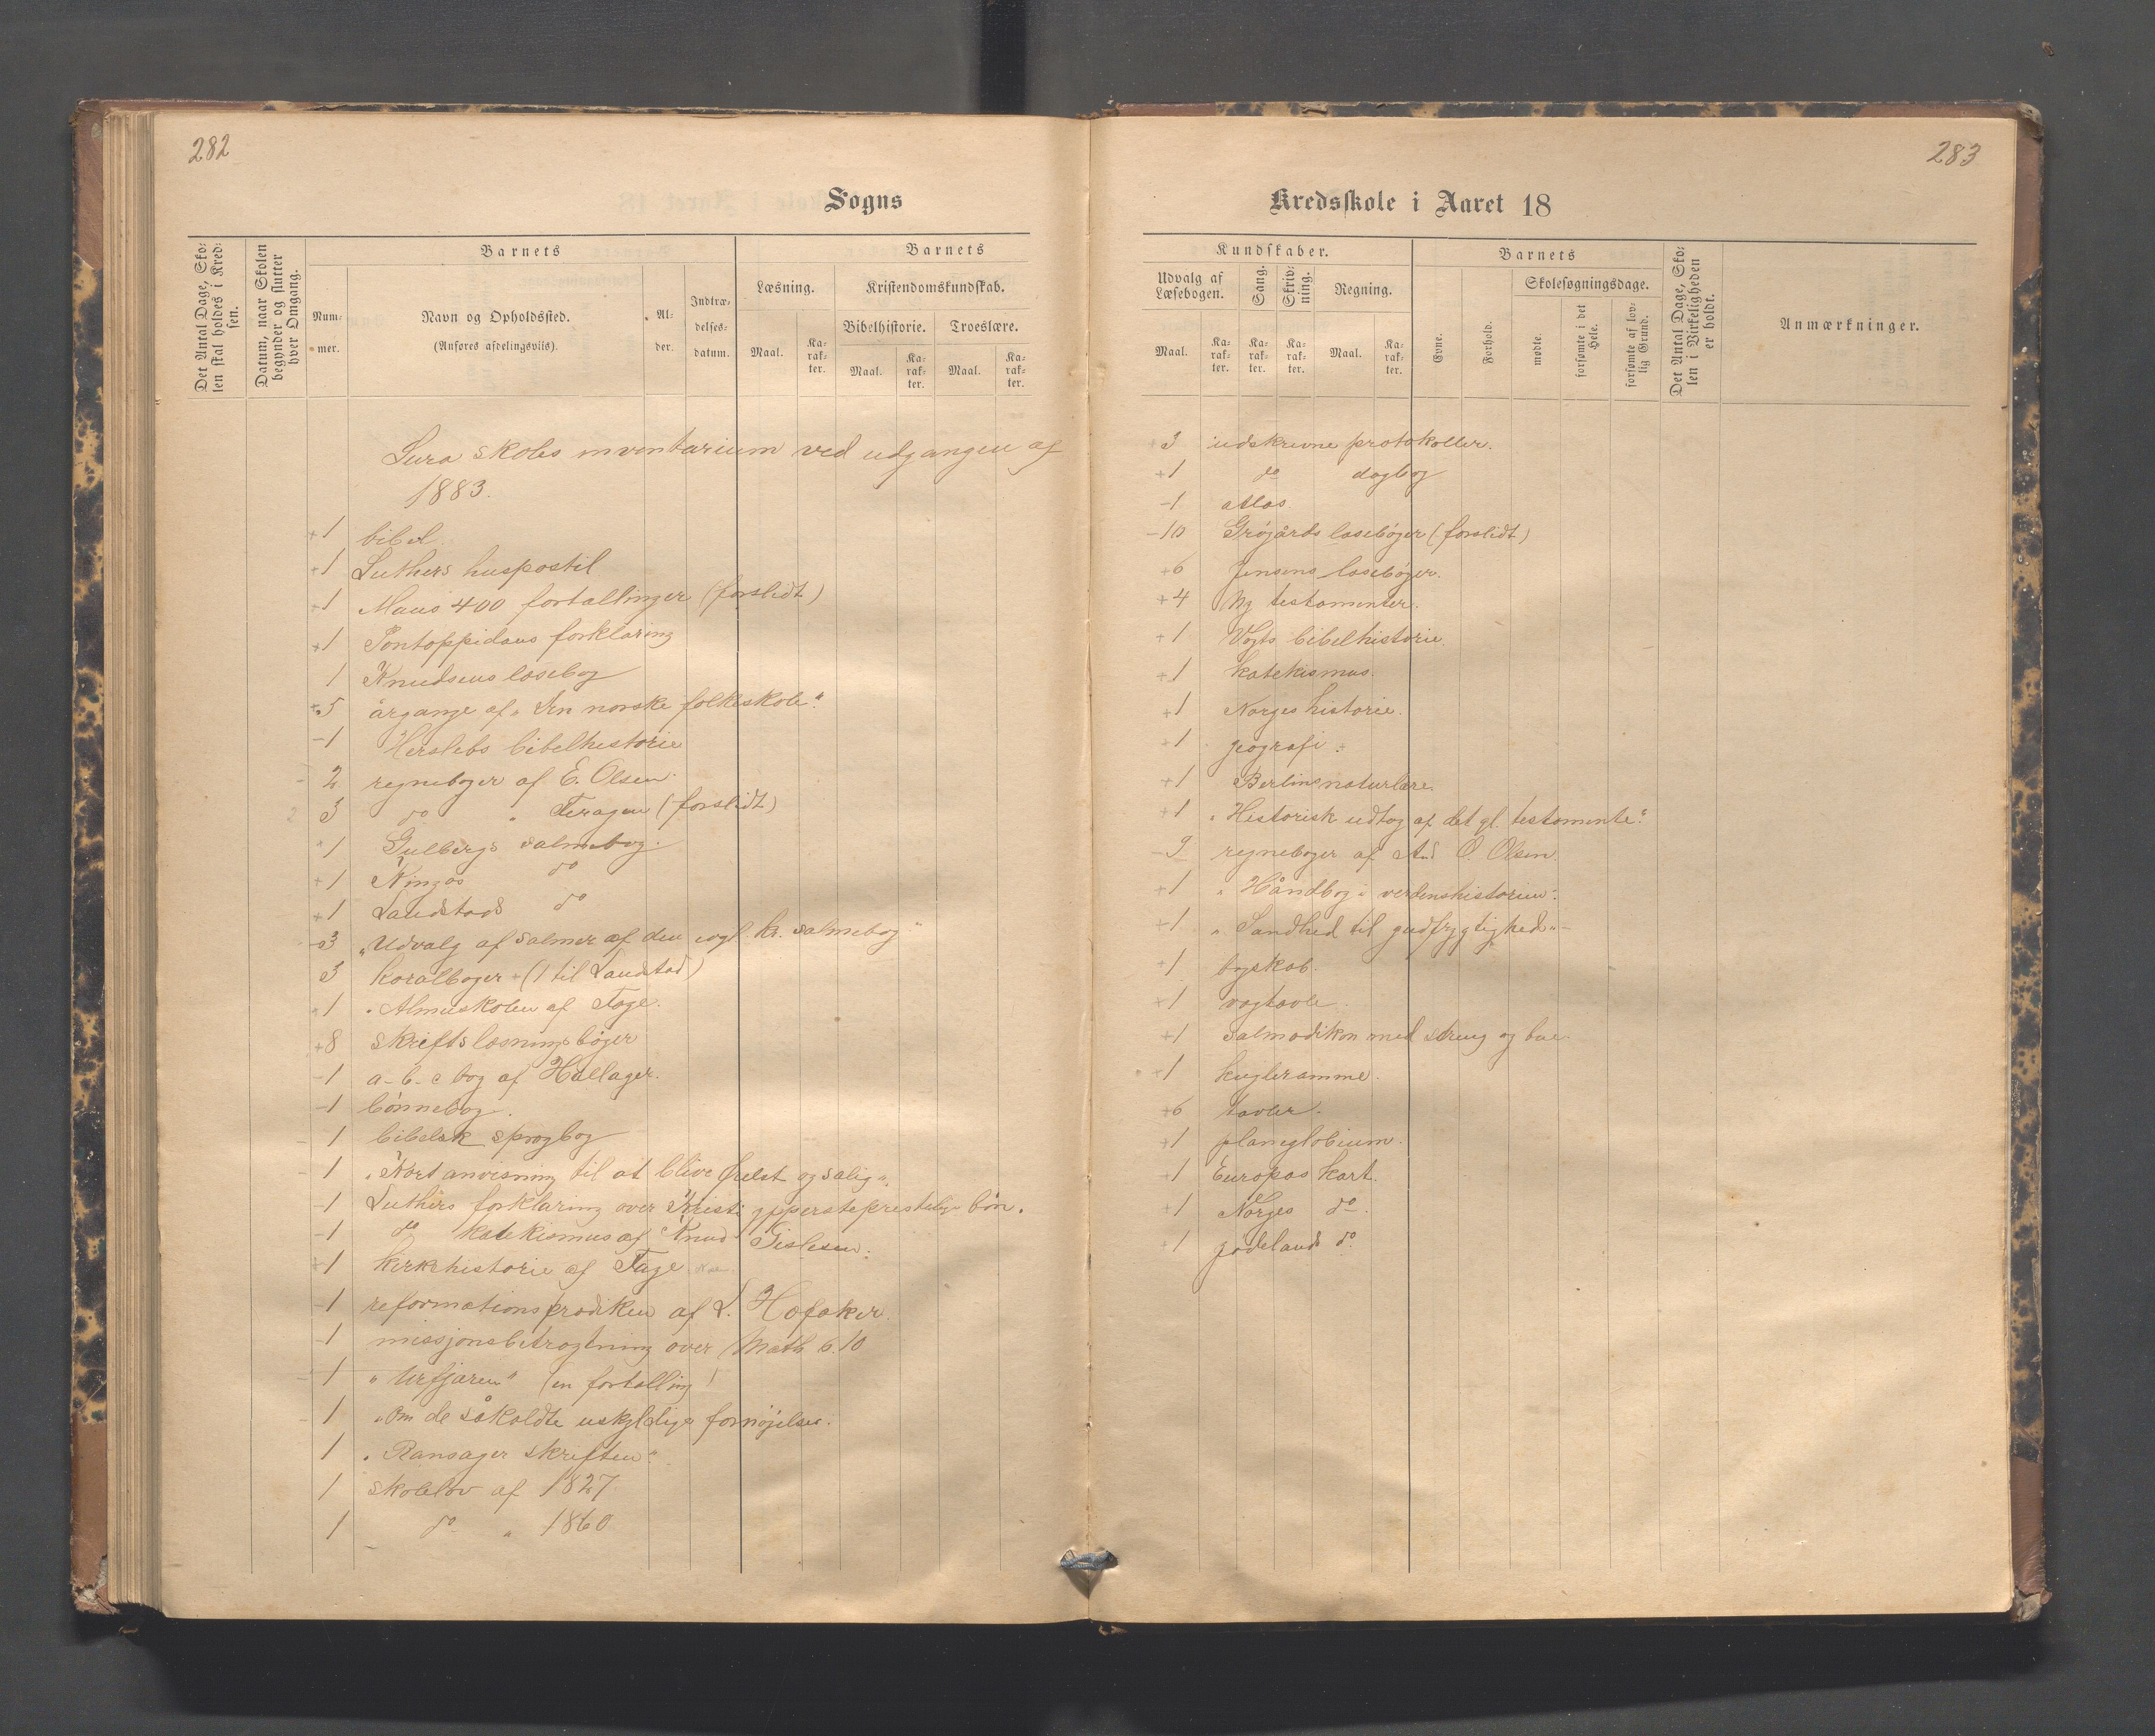 282
Sogns
Det Antal Dage, Sko-
len skal holdes i Kred-
sen.
Datum, naar Skolen
begynder og slutter
hver Omgang.
Barnets
Num-
mer.
Navn og Opholdssted.
(Anføres afdelingsviis).
Al-
der.
Indtræ-
delses-
datum.
Barnets
Læsning.
Kristendomskundskab.
Bibelhistorie.
Troeslære.
Maal.
Ka-
rak-
ter.
Maal.
Ka-
rak-
ter.
Maal.
Ka-
rak-
ter.
Lura skoles inventarium ved udgangen af
1883.
+1 bibel
+1 Luthers huspostil
+1 Maus 400 fortællinger (forslidt)
+1 Pontoppidans forklaring
1 Knudsens læsebog
+5 årgange af „Den norske folkeskole“
-1 Herslebs bibelhistorie
- 2 regnebøger af E. Olsen.
2 3 do „ Feragen (forslidt)
+1 Gulbergs salmebog.
+1 Kingos do
+1 Landstads do
-3 „Udvalg af salmer af den evgl. kr. salmebog“
3 koralbøger (1 til Landstad)
+1 „Almueskolen af Fage.
+8 skriftslæsningsbøger
-1 a-b-c bog af Hallager.
-1 bönnebog.
-1 bibelsk sprogbog
-1 „Kort anvisning til at blive frelst og salig“.
-1 Luthers forklaring over Kristi ypperstepresteligebön.
-1 do katekismus af Knud Gislesen.
+1 kirkehistorie af Fage
-1 reformationsprædiken af L. Hofaker.
-1 missjonsbetragtning over Math 6.10
-1 „Urfjæren“ (en fortælling)
-1 „Om de såkaldte uskyldige fornöjelser.
1 „Ransager skriften“
1 skolelov af 1827.
1 do „ 1860
283
Kredsskole i Aaret 18
Kundskaber.
Udvalg af
Læsebogen.
Sang.
Skriv-
ning.
Regning.
Maal.
Ka-
rak-
ter.
Ka-
rak-
ter.
Ka-
rak-
ter.
Maal.
Ka-
rak-
ter.
Barnets
Evne.
Forhold.
Skolesøgningsdage.
mødte.
forsømte i det
Hele.
forsømte af lov-
lig Grund.
Det Antal Dage, Sko-
len i Virkeligheden
er holdt.
Anmærkninger.
+3 udskrevne protokoller.
+1 do dagbog
-1 atlas
-10 Grögårds læsebøger (forslidt)
+6 Jensens læsebøger.
+4 Ny testamenter.
+1 Vogts bibelhistorie.
+1 katekismus.
+1 Norges historie.
+1 geografi.
+1 Berlins naturlære.
+1 „Historisk udtog af det gl. testamente“.
-9 regnebøger af And O. Olsen.
+1 „Håndbog i verdenshistorien“.
+1 „Sandhed til gudfrygtighed“
+1 bogskab.
+1 vægtavle.
+1 salmodikon med streng og bue
+1 kugleramme.
+6 tavler.
+1 planiglobium.
+1 Europas kart.
+1 Norges do.
+1 jödelands do.